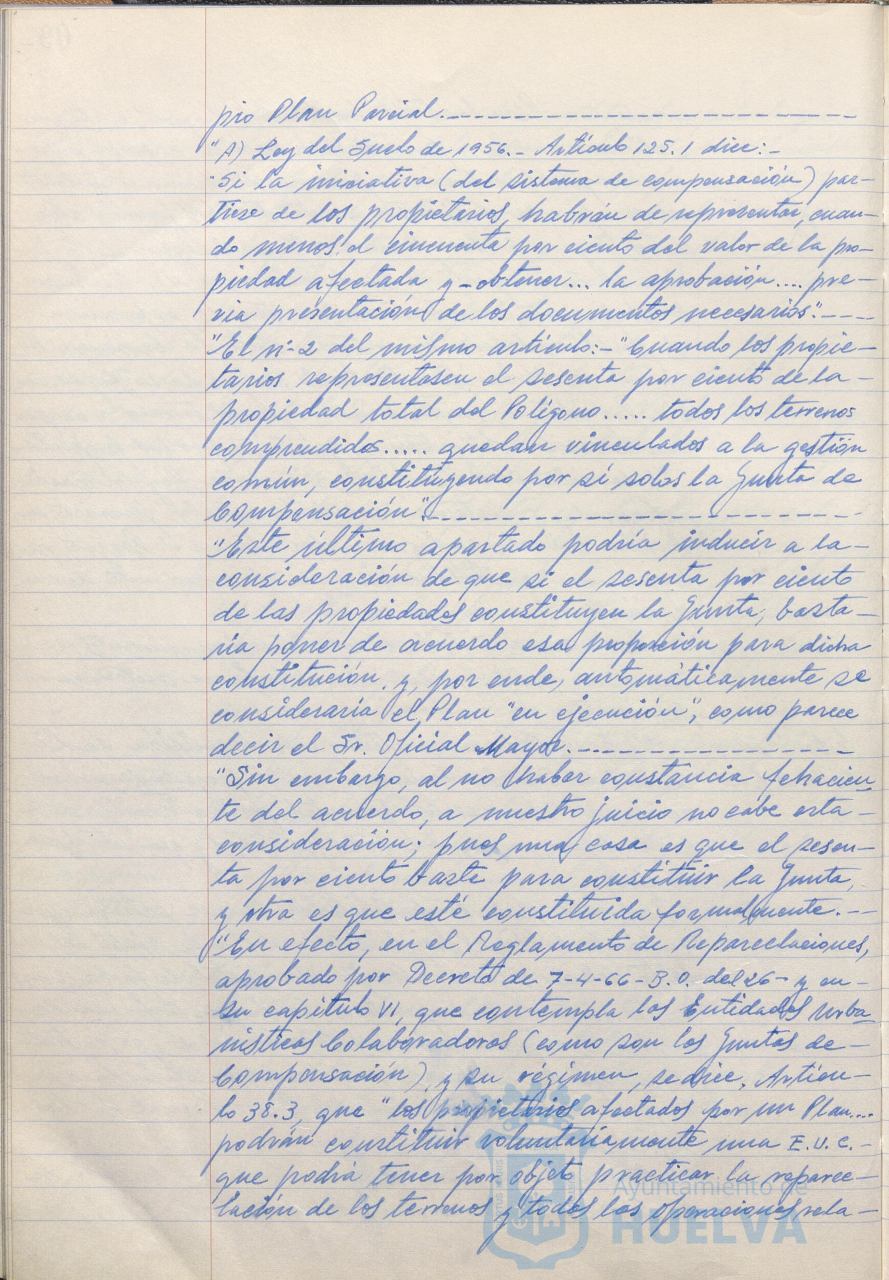 pio Plan Parcial.
"A) Ley del Suelo de 1956.- Artículo 125.1 dice:-
"Si la iniciativa (del sistema de compensación) par-
tiese de los propietarios, habrán de representar, cuan-
do menos, el cincuenta por ciento del valor de la pro-
piedad afectada y-obtener... la aprobación.... pre-
via presentación de los documentos necesarios".----
"El nº-2 del mismo artículo:-"Cuando los propie-
tarios representasen el sesenta por ciento de la-
propiedad total del Polígono..... todos los terrenos
comprendidos..... quedan vinculados a la gestión
común, constituyendo por sí solos la Junta de
Compensación".
"Este último apartado podría inducir a la-
consideración de que si el sesenta por ciento
de las propiedades constituyen la Junta, basta-
ría poner de acuerdo esa proporción para dicha
constitución, y, por ende, automáticamente se
consideraría el Plan "en ejecución", como parece
decir el Sr. Oficial Mayor.
"Sin embargo, al no haber constancia fehacien-
te del acuerdo, a nuestro juicio no cabe esta-
consideración; pues una cosa es que el sesen-
ta por ciento baste para constituir la Junta,
y otra es que esté constituida formalmente.--
"En efecto, en el Reglamento de Reparcelaciones,
aprobado por Decreto de 7-4-66-B.O. del 26- y en-
su capítulo VI, que contempla las Entidades Urba-
nísticas Colaboradoras (como son las Juntas de-
Compensación) y su régimen, se dice, Artícu-
lo 38.3, que "los propietarios afectados por un Plan....
podrán constituir voluntariamente una E.U.C.-
que podrá tener por objeto practicar la reparce-
lación de los terrenos y todas las operaciones rela-
Ayuntamiento de
HUELVA